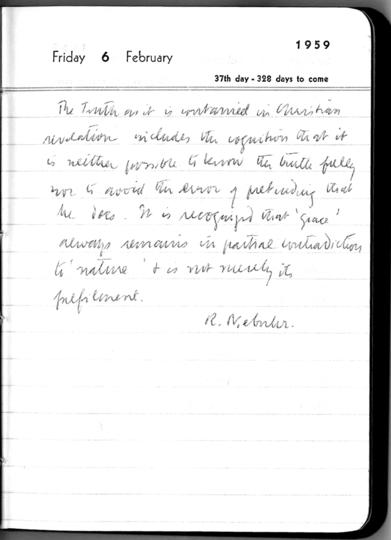 1959
Friday 6 February
37th day - 328 days to come
The Truth as it is contained in Christian
revelation includes the cognition that it
is neither possible to know the truth fully
nor to avoid the error of pretending that
he does. It is recognized that 'grace'
always remains in partial contradiction
to 'nature' & is not merely its
fulfilment.
R. Niebuhr.